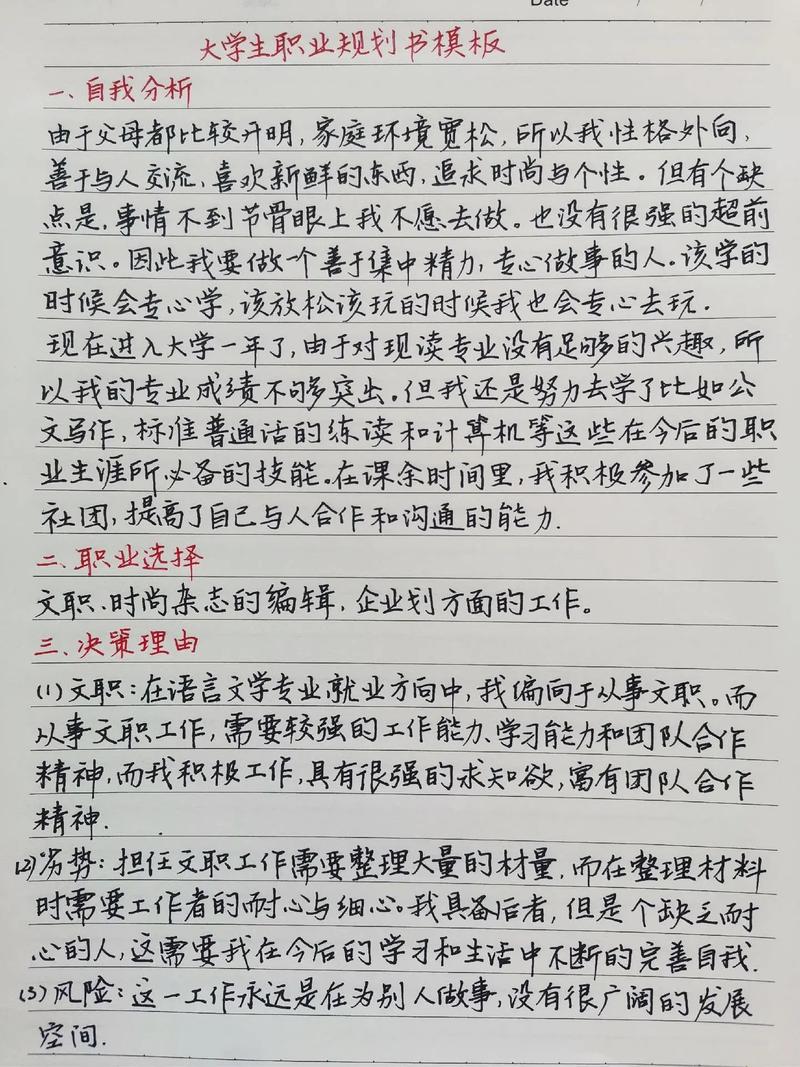 Date / /
大学生职业规划书模板
一、自我分析
由于父母都比较开明，家庭环境宽松，所以我性格外向，
善于与人交流，喜欢新鲜的东西，追求时尚与个性。但有个缺
点是，事情不到节骨眼上我不愿去做。也没有很强的超前
意识。因此我要做一个善于集中精力，专心做事的人。该学的
时候会专心学，该放松该玩的时候我也会专心去玩.
现在进入大学一年了，由于对现读专业没有足够的兴趣，所
以我的专业成绩不够突出。但我还是努力去学了比如公
文写作，标准普通话的练读和计算机等这些在今后的职
业生涯所必备的技能。在课余时间里，我积极参加了一些
社团，提高了自己与人合作和沟通的能力.
二、职业选择
文职、时尚杂志的编辑，企业划方面的工作。
三、决策理由
(1)文职：在语言文学专业就业方向中，我偏向于从事文职。而
从事文职工作，需要较强的工作能力、学习能力和团队合作
精神，而我积极工作，具有很强的求知欲，富有团队合作
精神.
(2)劣势：担任文职工作需要整理大量的材量，而在整理材料
时需要工作者的耐心与细心。我具备后者，但是个缺乏耐
心的人，这需要我在今后的学习和生活中不断的完善自我.
(3)风险：这一工作永远是在为别人做事，没有很广阔的发展
空间.